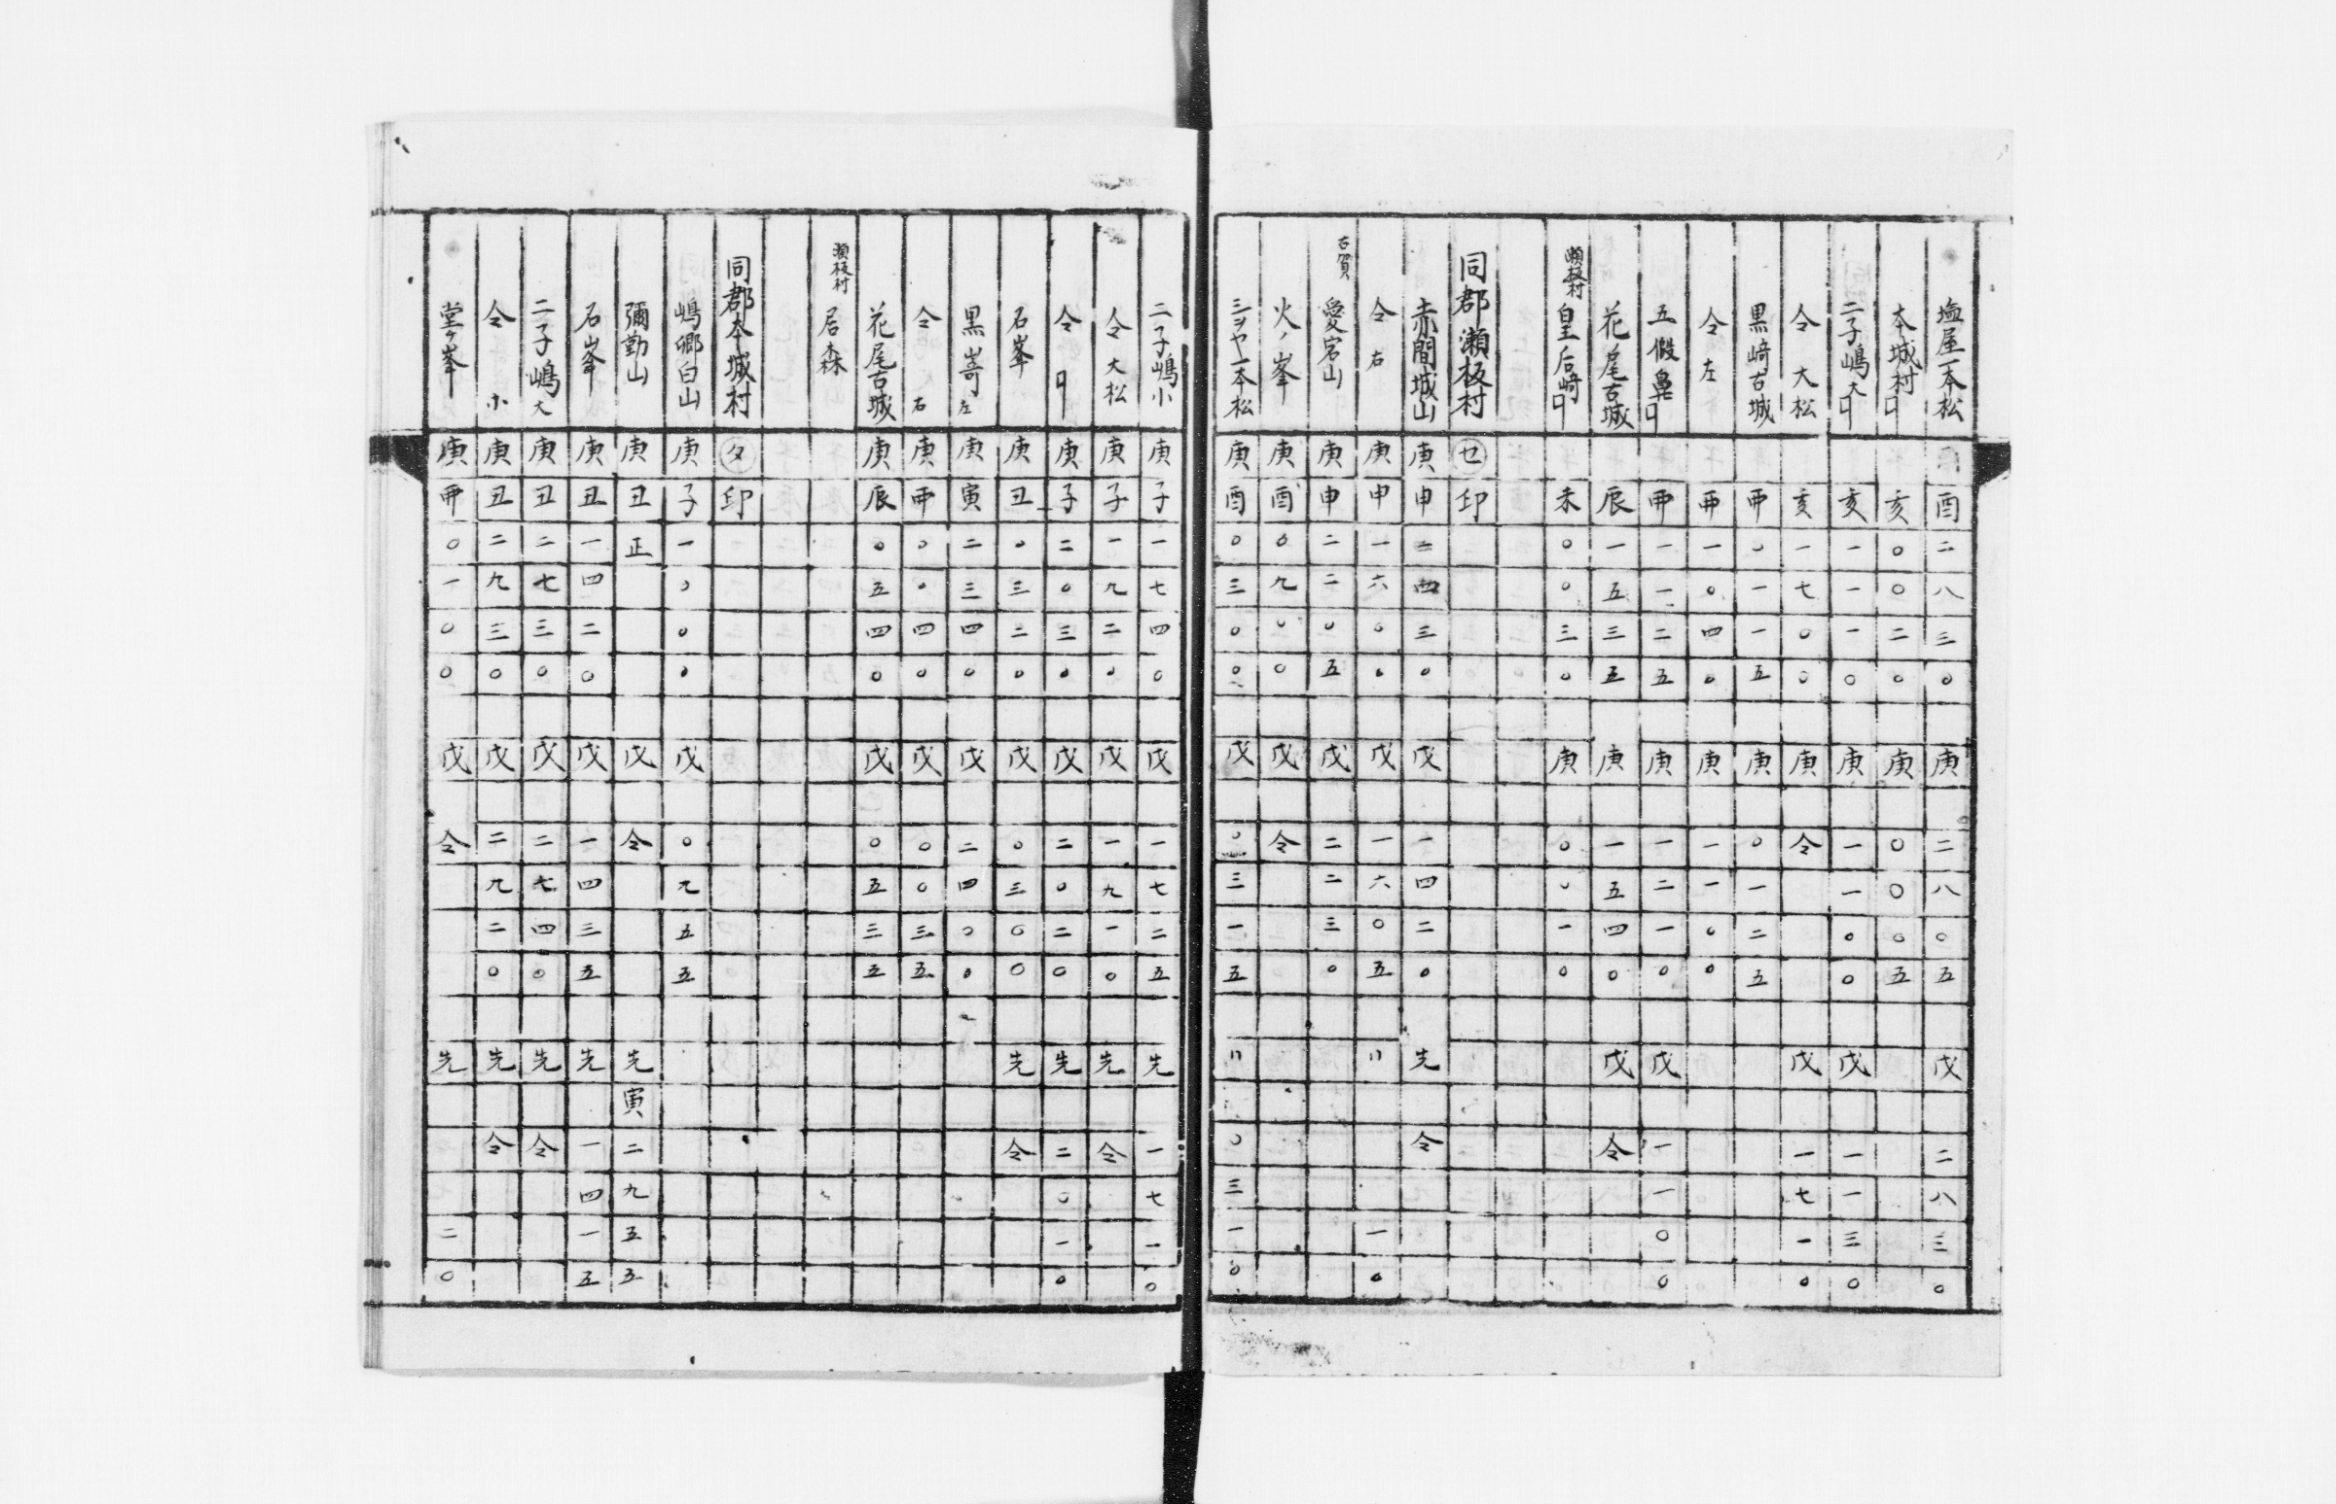 塩屋一本松 酉 二 八 三 〇 庚 二 八 〇 五 戊 二 八 三 〇
本城村卩 亥 〇 〇 二 〇 庚 〇 〇 〇 五
二子嶋大卩 亥 一 一 一 〇 庚 一 一 〇 〇 戊 一 一 三 〇
仝 大松 亥 一 七 〇 〇 庚 仝 戊 一 七 一 〇
黒﨑古城 丣 〇 一 一 五 庚 〇 一 二 五
仝 左 丣 一 〇 四 〇 庚 一 一 〇 〇
五假鼻卩 丣 一 一 二 五 庚 一 二 一 〇 戊 一 一 〇 〇
花尾古城 辰 一 五 三 五 庚 一 五 四 〇 戊 仝
瀬板村 皇后﨑卩 未 〇 〇 三 〇 庚 〇 〇 一 〇
同郡瀬板村 セ 印
赤間城山 庚 申 二 四 三 〇 戊 一 四 二 〇 先 仝
仝 右 庚 申 一 六 〇 〇 戊 一 六 〇 五 〃 一 〇
古賀 愛宕山 庚 申 二 二 〇 五 戊 二 二 三 〇
火ノ峯 庚 酉 〇 九 〇 〇 戊 仝
シヲヤ一本松 庚 酉 〇 三 〇 〇 戊 〇 三 一 五 〃 〇 三 一 〇
二子嶋小 庚 子 一 七 四 〇 戊 一 七 二 五 先 一 七 一 〇
仝 大松 庚 子 一 九 二 〇 戊 一 九 一 〇 先 仝
仝 卩 庚 子 二 〇 三 〇 戊 二 〇 二 〇 先 二 〇 一 〇
石峯 庚 丑 〇 三 二 〇 戊 〇 三 〇 〇 先 仝
黒嵜左 庚 寅 二 三 四 〇 戊 二 四 〇 〇
仝 右 庚 丣 〇 〇 四 〇 戊 〇 〇 三 五
花尾古城 庚 辰 〇 五 四 〇 戊 〇 五 三 五
瀬板村 居森
同郡本城村 タ 印
嶋郷白山 庚 子 一 〇 〇 〇 戊 〇 九 五 五
彌勤山 庚 丑 正 戊 仝 先 寅 二 九 五 五
石峯 庚 丑 一 四 二 〇 戊 一 四 三 五 先 一 四 一 五
二子嶋大 庚 丑 二 七 三 〇 戊 二 七 四 〇 先 仝
仝 小 庚 丑 二 九 三 〇 戊 二 九 二 〇 先 仝
堂ヶ峯 庚 丣 〇 一 〇 〇 戊 仝 先 二 〇